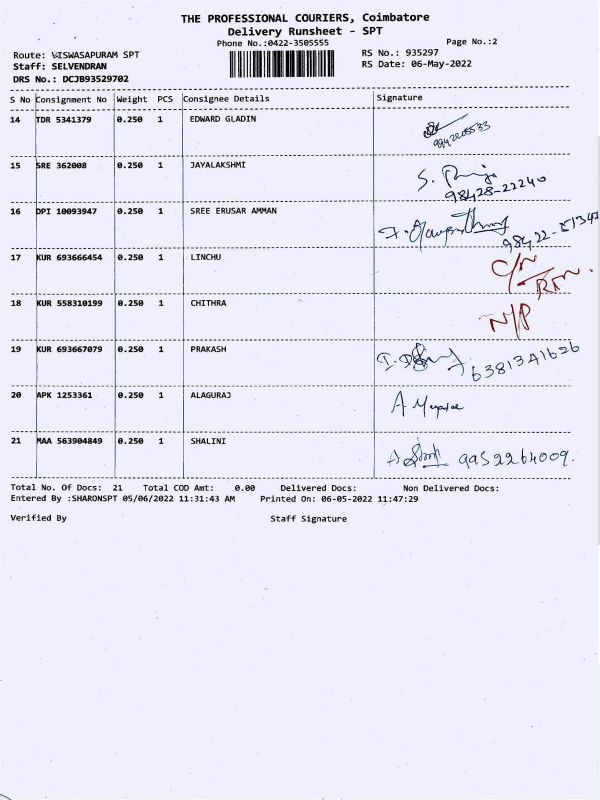 THE PROFESSIONAL COURIERS, Coimbatore
Delivery Runsheet - SPT
Phone No.:0422-3505555
Page No.:2
Route: VISWASAPURAM SPT
RS No.: 935297
Staff: SELVENDRAN
RS Date: 06-May-2022
DRS No.: DCJB93529702
S No Consignment No Weight PCS Consignee Details Signature
14 TDR 5341379 0.250 1 EDWARD GLADIN
15 SRE 362008 0.250 1 JAYALAKSHMI
98428-22240
16 DPI 10093947 0.250 1 SREE ERUSAR AMMAN
17 KUR 693666454 0.250 1 LINCHU
C/N
RTN.
18 KUR 558310199 0.250 1 CHITHRA
N/P
19 KUR 693667079 0.250 1 PRAKASH
6381341626
20 APK 1253361 0.250 1 ALAGURAJ
21 MAA 563904849 0.250 1 SHALINI
9952264009.
Total No. Of Docs: 21 Total COD Amt: 0.00 Delivered Docs: Non Delivered Docs:
Entered By :SHARONSPT 05/06/2022 11:31:43 AM Printed On: 06-05-2022 11:47:29
Verified By Staff Signature